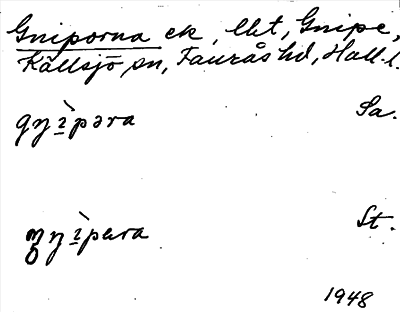 Gniporna ek, lht, Gnipe,
Källsjö sn, Faurås hd, Hall. l.
gŋì̠pəra Sa.
ŋì̠pura St.
1948